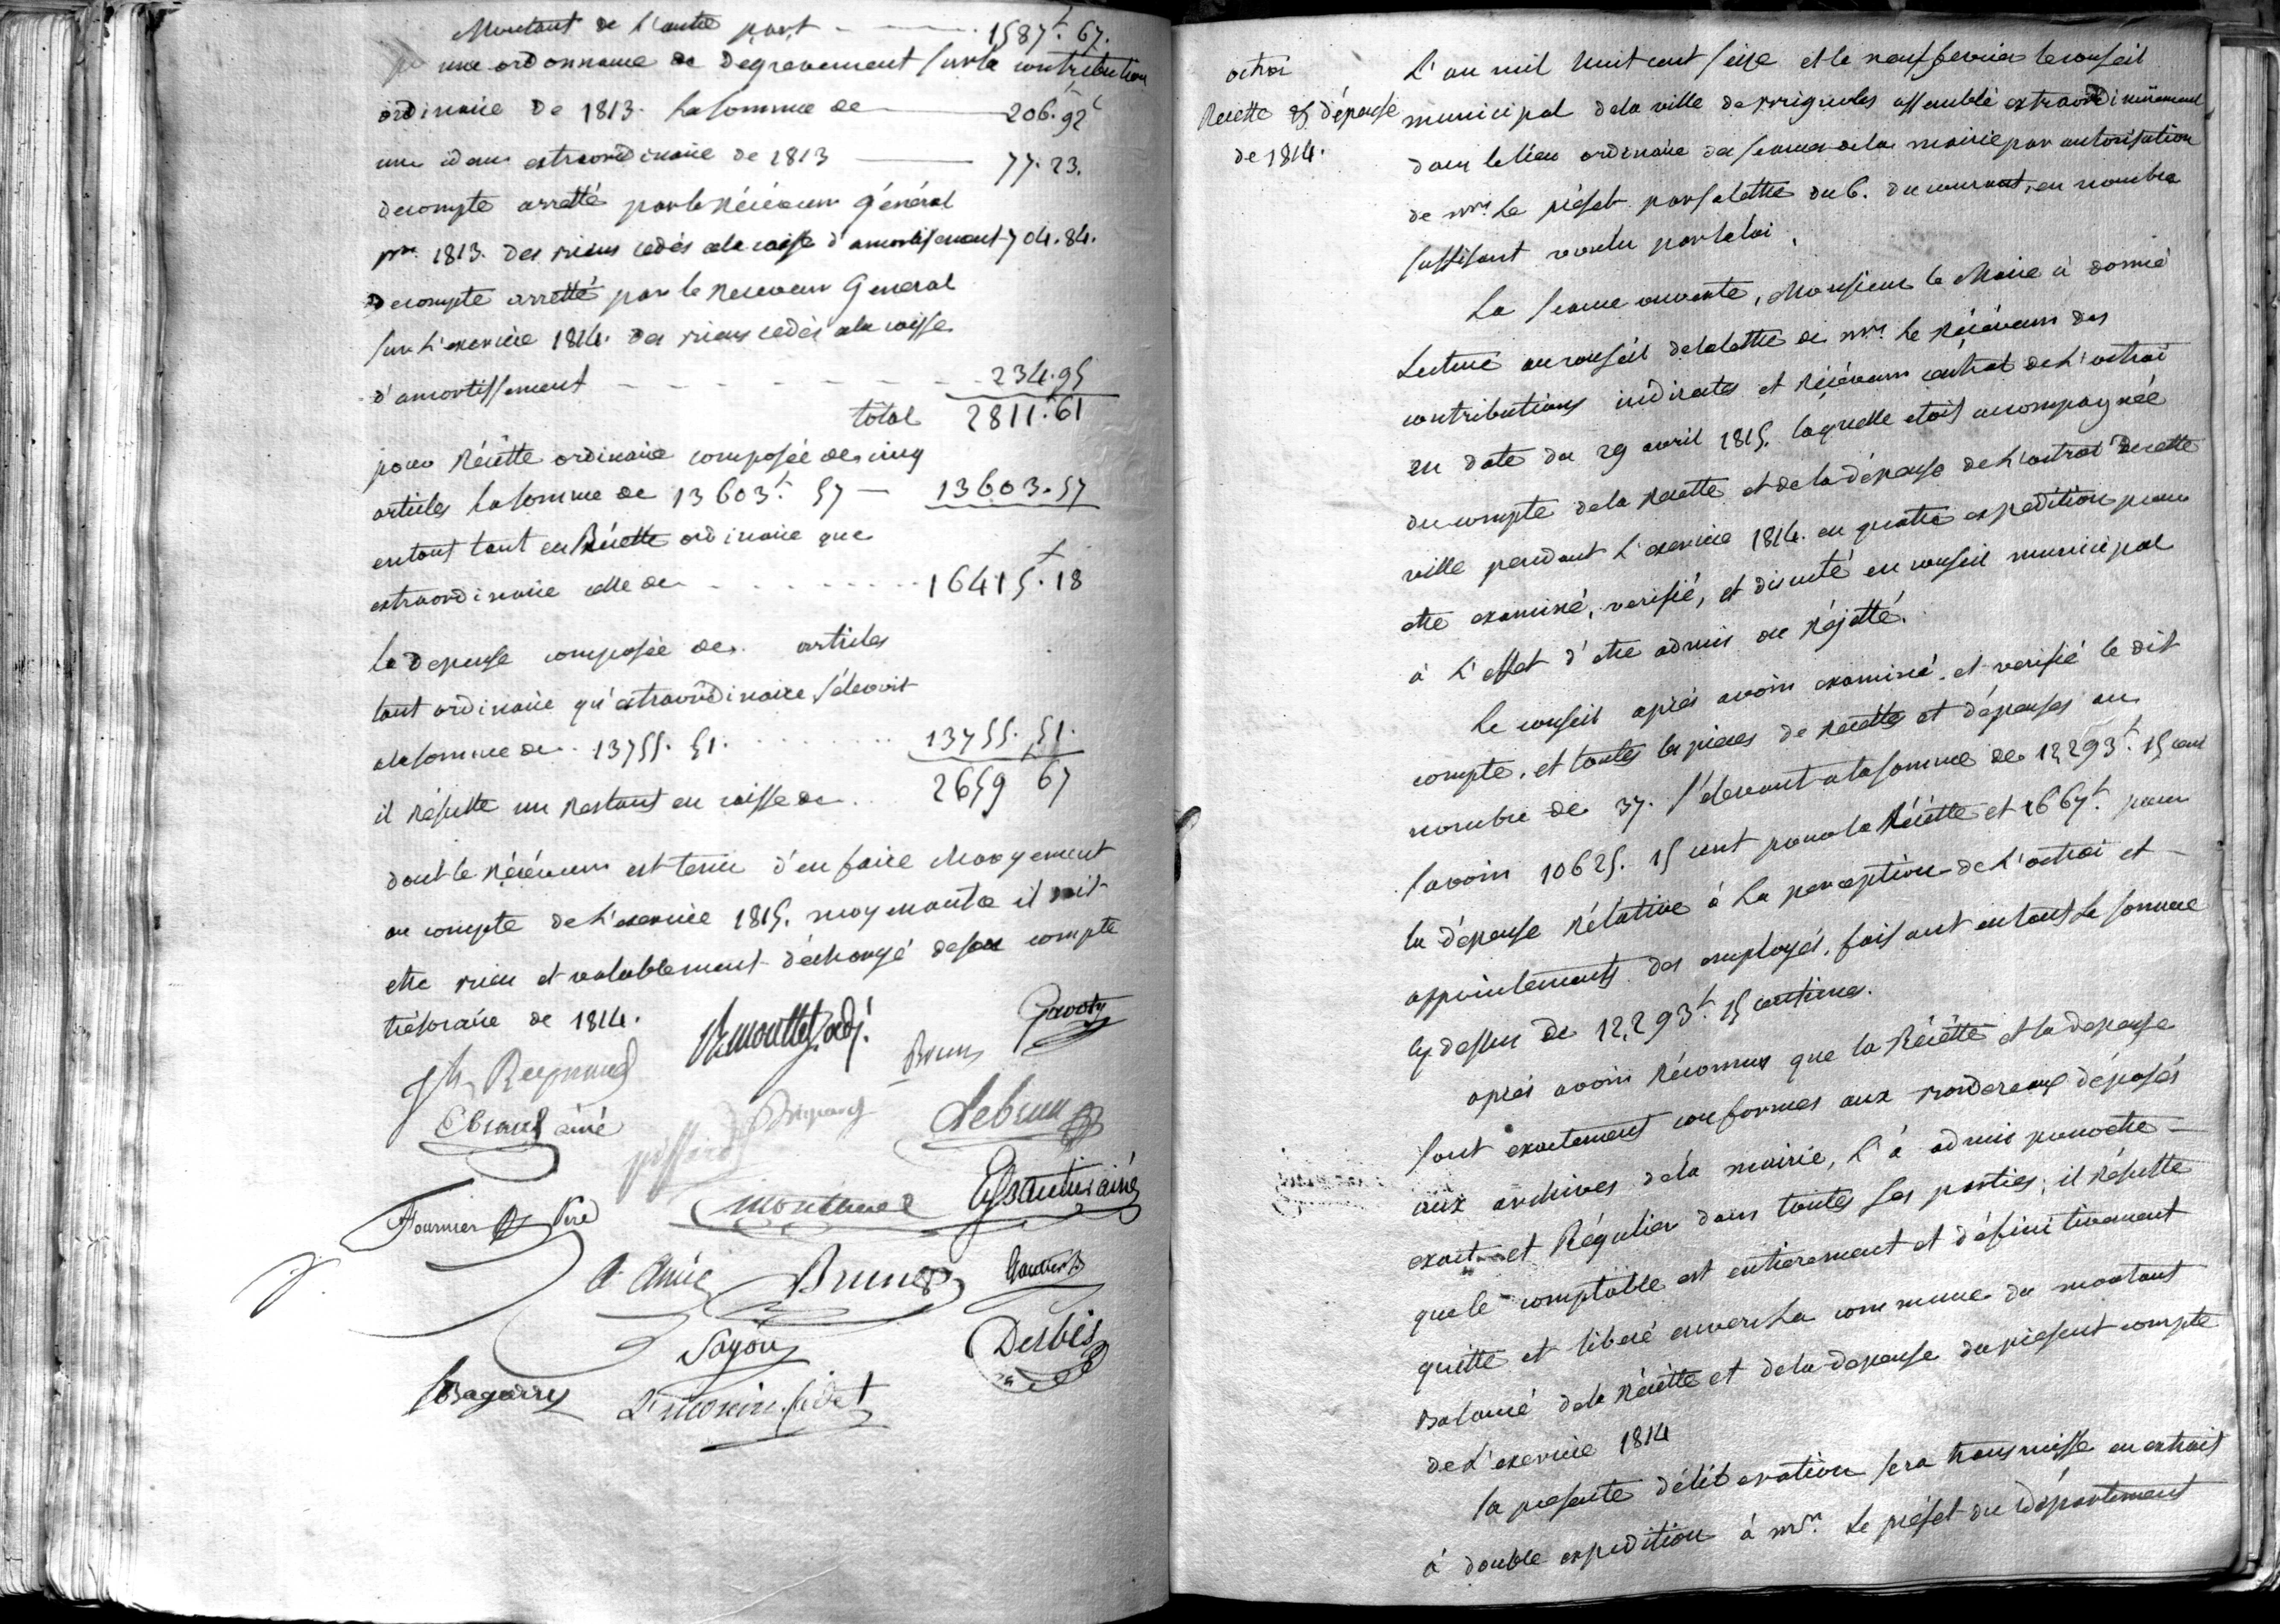 Montant de l'autre part - 1587# 67.
une ordonnance de degrevement sur la contribution
ordinaire de 1813. la somme de 206# 92c
une idem extraordinaire de 1813 77. 23.
decompte arretté par le Récéveur général
pr. 1813. des biens cédés a la caisse d'amortissement 704. 84.
Decompte arretté par le Receveur General
sur l'exercice 1814. des biens cedés a la caisse
d'amortissement - - - - - - 234. 95
total 2811. 61
pour Récétte ordinaire composée de cinq
articles la somme de 13603# 57 - 13603. 57
en tout tant en Récétte ordinaire que
extraordinaire celle de 16415# 18
la depense composée de articles
tant ordinaire qu'extraordinaire s'elevoit
a la somme de 13755. 51. 13755. 51.
il résulte un Restant en caisse de 2659 67
dont le Récéveur est tenu d'en faire chargement
au compte de l'exercice 1815. moyenant ce il doit
etre bien et valablement déchargé de son compte
trésoraire de 1814.
Jh Reymaud Remouttet, adj. Brun Gavoty
Ebrard ainé Lebrun
Fournier Pere
A. Amic Brunet
Payou Desbès
Bagarry
octroi
Recette et dépense
de 1814.
L'an mil huit cent seize et le neuf fevrier le conseil
municipal de la ville de Brignoles assemblé extraordinairement
dans le lieu ordinaire des seances de la mairie par autorisation
de mr. le préfet par sa lettre du 6. du courant, en nombre
suffisant voulu par la loi.
La seance ouverte, Monsieur le Maire à donné
Lecture au conseil de la lettre de mr. le Récéveur des
contributions indirectes et Récéveur central de l'octroi
en date du 29 avril 1815. laquelle etoit accompagnée
du compte de la Recette et de la dépense de l'octroi de cette
ville pendant l'exercice 1814. en quatre expedition pour
etre examiné, verifié, et discuté en conseil municipal
à l'effet d'etre admis ou Réjétté.
Le conseil aprés avoir examiné, et verifié le dit
compte, et toutes les pieces de Récéttes et dépenses au
nombre de 37. s'elevant a la somme de 12293# 15 cent
savoir 10625. 15 cent pour la Récétte et 1667# pour
la dépense Rélative à la perception de l'octroi et
appointements des employés, faisant en tout la somme
cy dessus de 12,293# 15 centimes.
aprés avoir Réconnu que la Récétte et la depense
sont exactement conformes aux Bordereaux déposés
aux archives de la mairie, l'à admis pour etre
exact et Régulier dans toutes ses parties; il Résulte
que le comptable est entierement et définitivement
quitte et liberé envers la commune du montant
Balancé de la Récétte et de la depense du présent compte
de l'exercice 1814
la presente déliberation sera transmisse en extrait
à double expedition à mr. le préfet du département